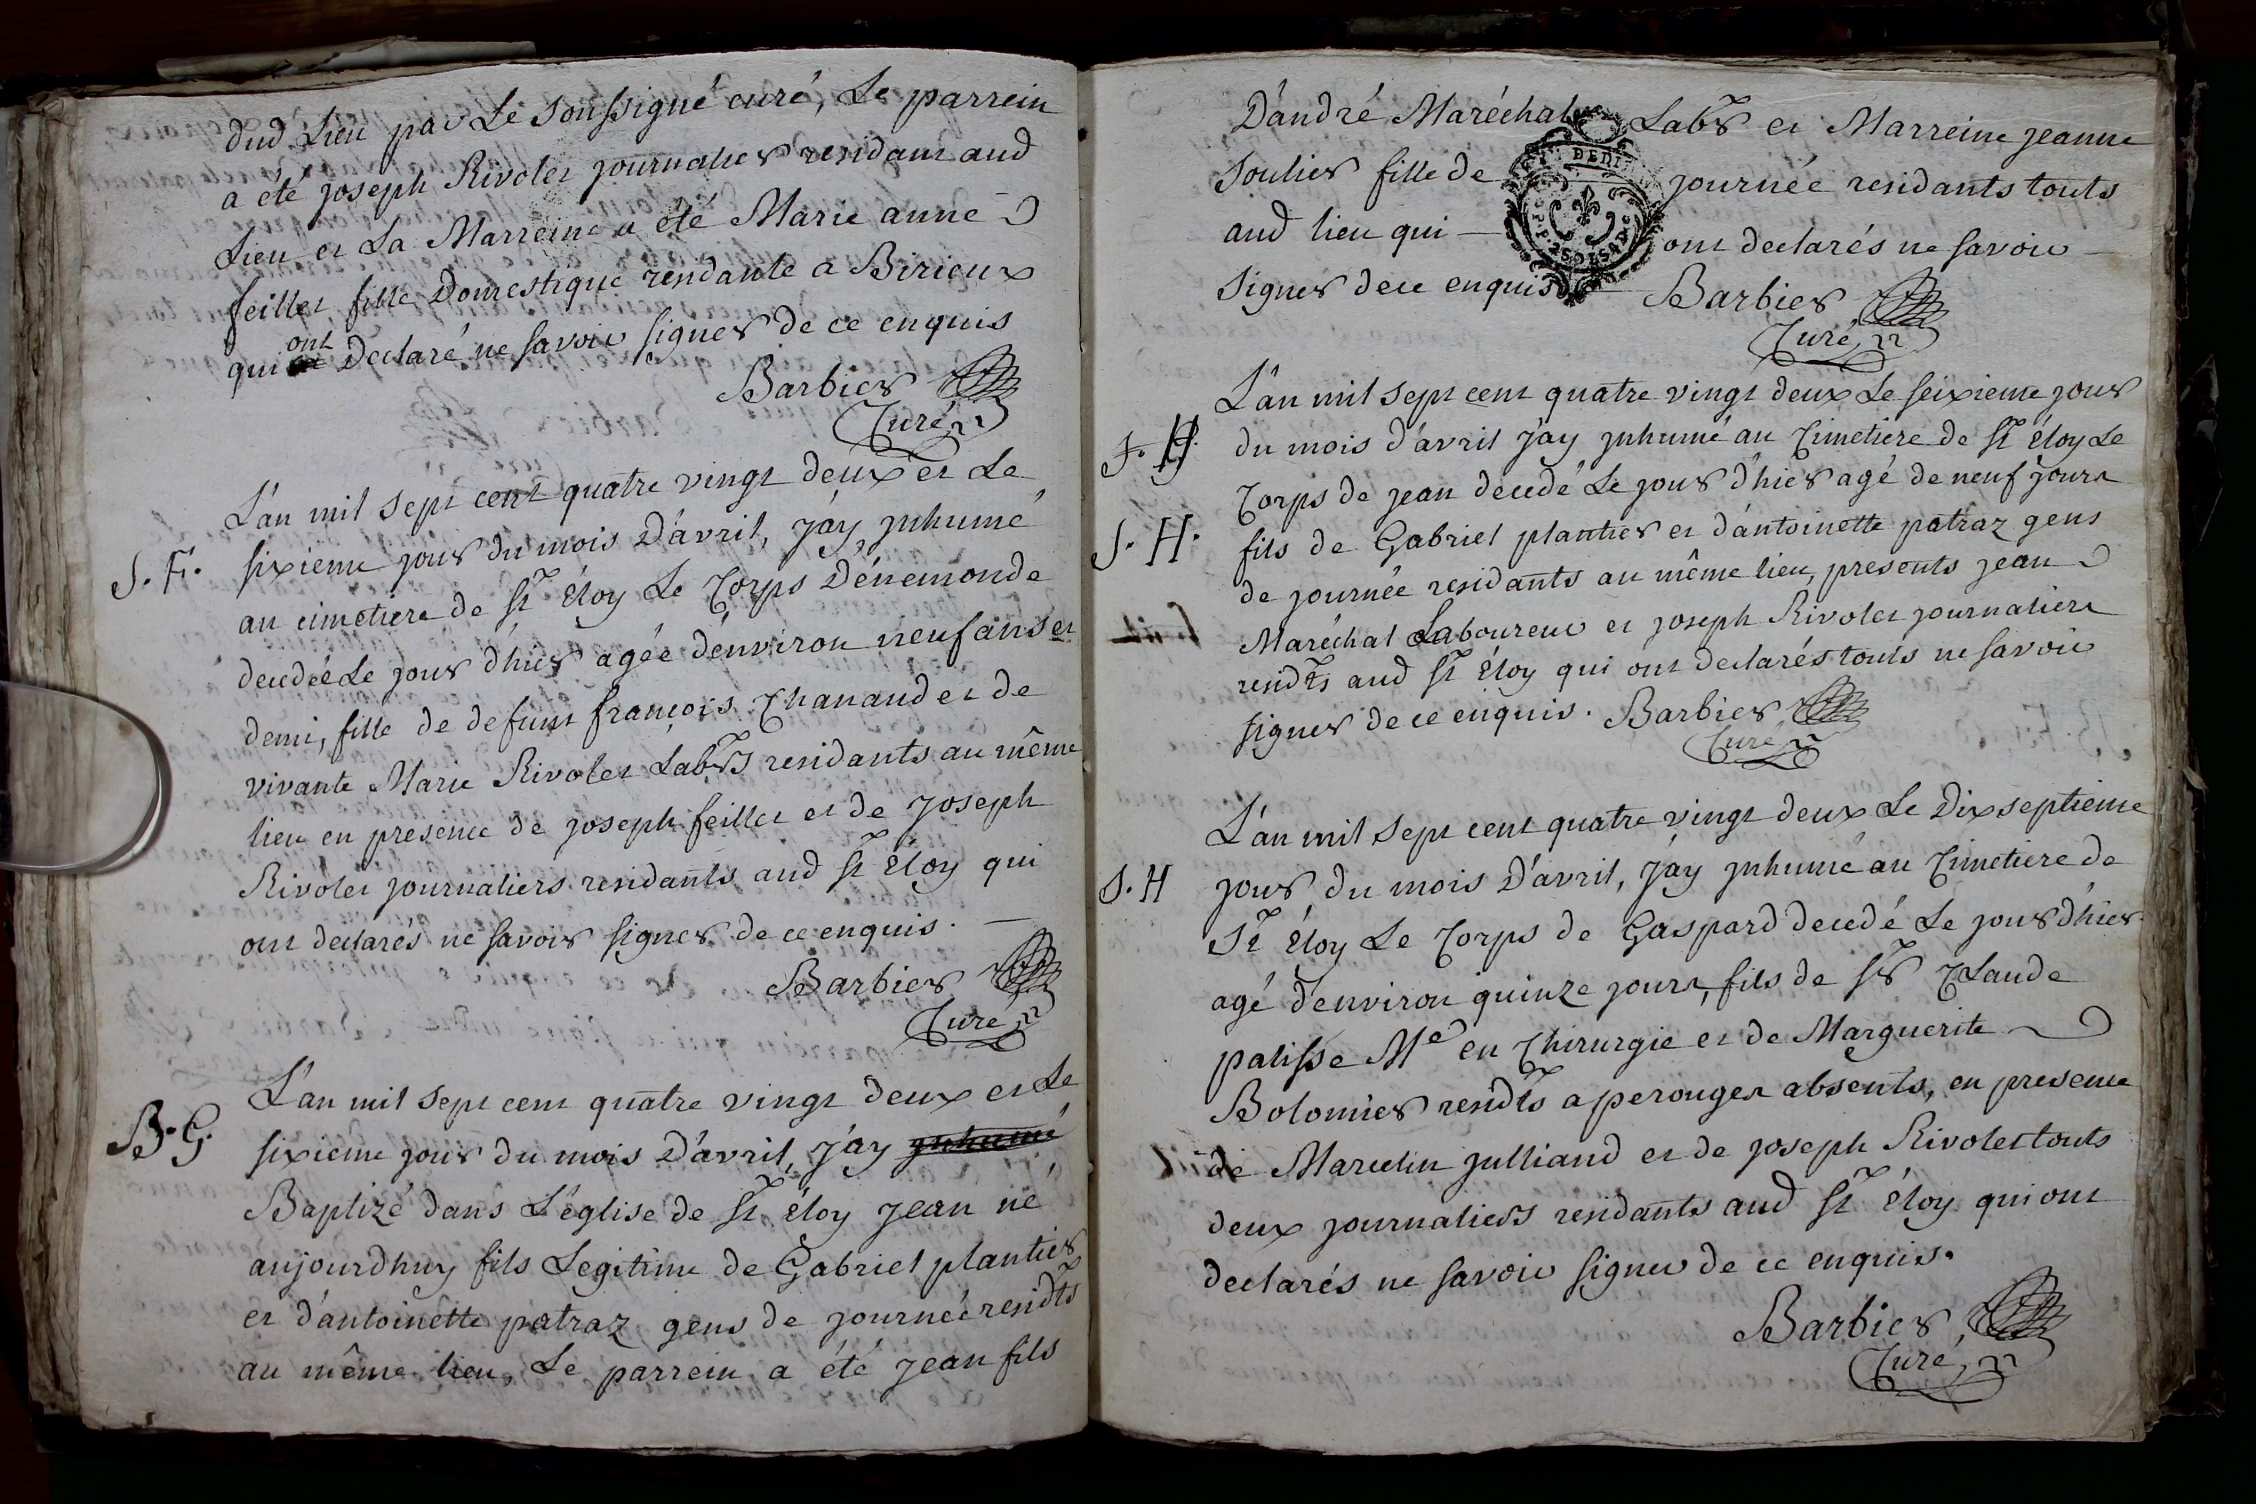 dud Lieu par Le soussigné curé, Le parrein
a été joseph Rivolet journalier residant aud
Lieu et La Marreine a été Marie anne
feillet fille Domestique residante a Birieux
qui ont Declaré ne savoir signer de ce enquis
Barbier
Curé
L'an mil sept cent quatre vingt deux et Le
S. F. sixieme jour du mois D'avril, j'ay jnhumé
au cimetiere de St Éloy Le Corps D'énemonde
decedée Le jour d'hier agée d'environ neuf ans et
demi, fille de defunt françois Chanaud et de
vivante Marie Rivolet Labrs residants au même
lieu en presence de joseph feillet et de joseph
Rivolet journaliers residants aud St Éloy qui
ont declarés ne savoir signer de ce enquis.
Barbier
Curé
L'an mil sept cent quatre vingt deux et Le
B. G. sixieme jour du mois D'avril, j'ay jnhumé
Baptizé dans L'église de St Éloy jean né
aujourdhuy fils Legitime de Gabriel plantier
et d'antoinette patraz gens de journée residts
au même lieu, Le parrein a été jean fils
D'andré Maréchal Labr et Marreine jeanne
soulier fille de journée residants touts
aud lieu qui ont declarés ne savoir
signer de ce enquis Barbier
Curé
L'an mil sept cent quatre vingt deux Le seixieme jour
du mois d'avril j'ay jnhumé au Cimetiere de St Éloy Le
Corps de jean decedé Le jour d'hier agé de neuf jours
S. H. fils de Gabriel plantier et d'antoinette patraz gens
de journée residants au même lieu, presents jean
Maréchal Laboureur et joseph Rivolet journaliers
residts aud St Éloy qui ont declarés touts ne savoir
signer de ce enquis. Barbier
Curé
L'an mil sept cent quatre vingt deux Le Dixseptieme
S. H jour du mois D'avril, j'ay jnhumé au Cimetiere de
St Éloy Le Corps de Gaspard decedé Le jour d'hier
agé d'environ quinze jours, fils de sr Claude
palisse Me en Chirurgie et de Marguerite
Bolomier residts a perouges absents, en presence
de Marcelin julliand et de joseph Rivolet touts
deux journaliers residants aud St Éloy qui ont
declarés ne savoir signer de ce enquis.
Barbier,
Curé,